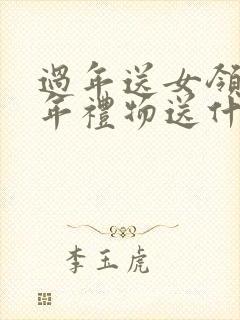 過年送女領
年禮物送什
李玉虎